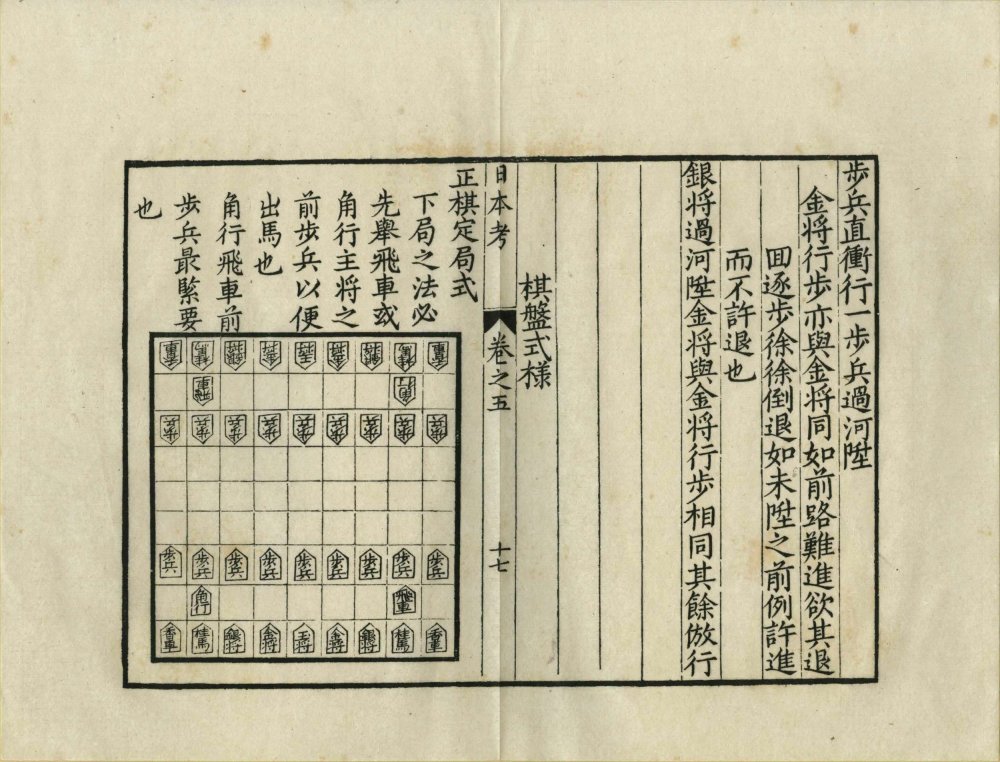 步兵直衝行一步兵過河陞
金将行步亦與金将同如前路難進欲其退
囬逐步徐徐倒退如未陞之前例許進
而不許退也
銀将過河陞金将與金将行步相同其餘倣行
棋盤式様
日本考
卷之五
十七
正棋定局式
下局之法必
先舉飛車或
角行主将之
前步兵以便
出馬也
角行飛車前
步兵最緊要
也
香車 桂馬 銀将 金将 王将 金将 銀将 桂馬 香車
飛車 角行
步兵 步兵 步兵 步兵 步兵 步兵 步兵 步兵 步兵
步兵 步兵 步兵 步兵 步兵 步兵 步兵 步兵 步兵
角行 飛車
香車 桂馬 銀将 金将 王将 金将 銀将 桂馬 香車